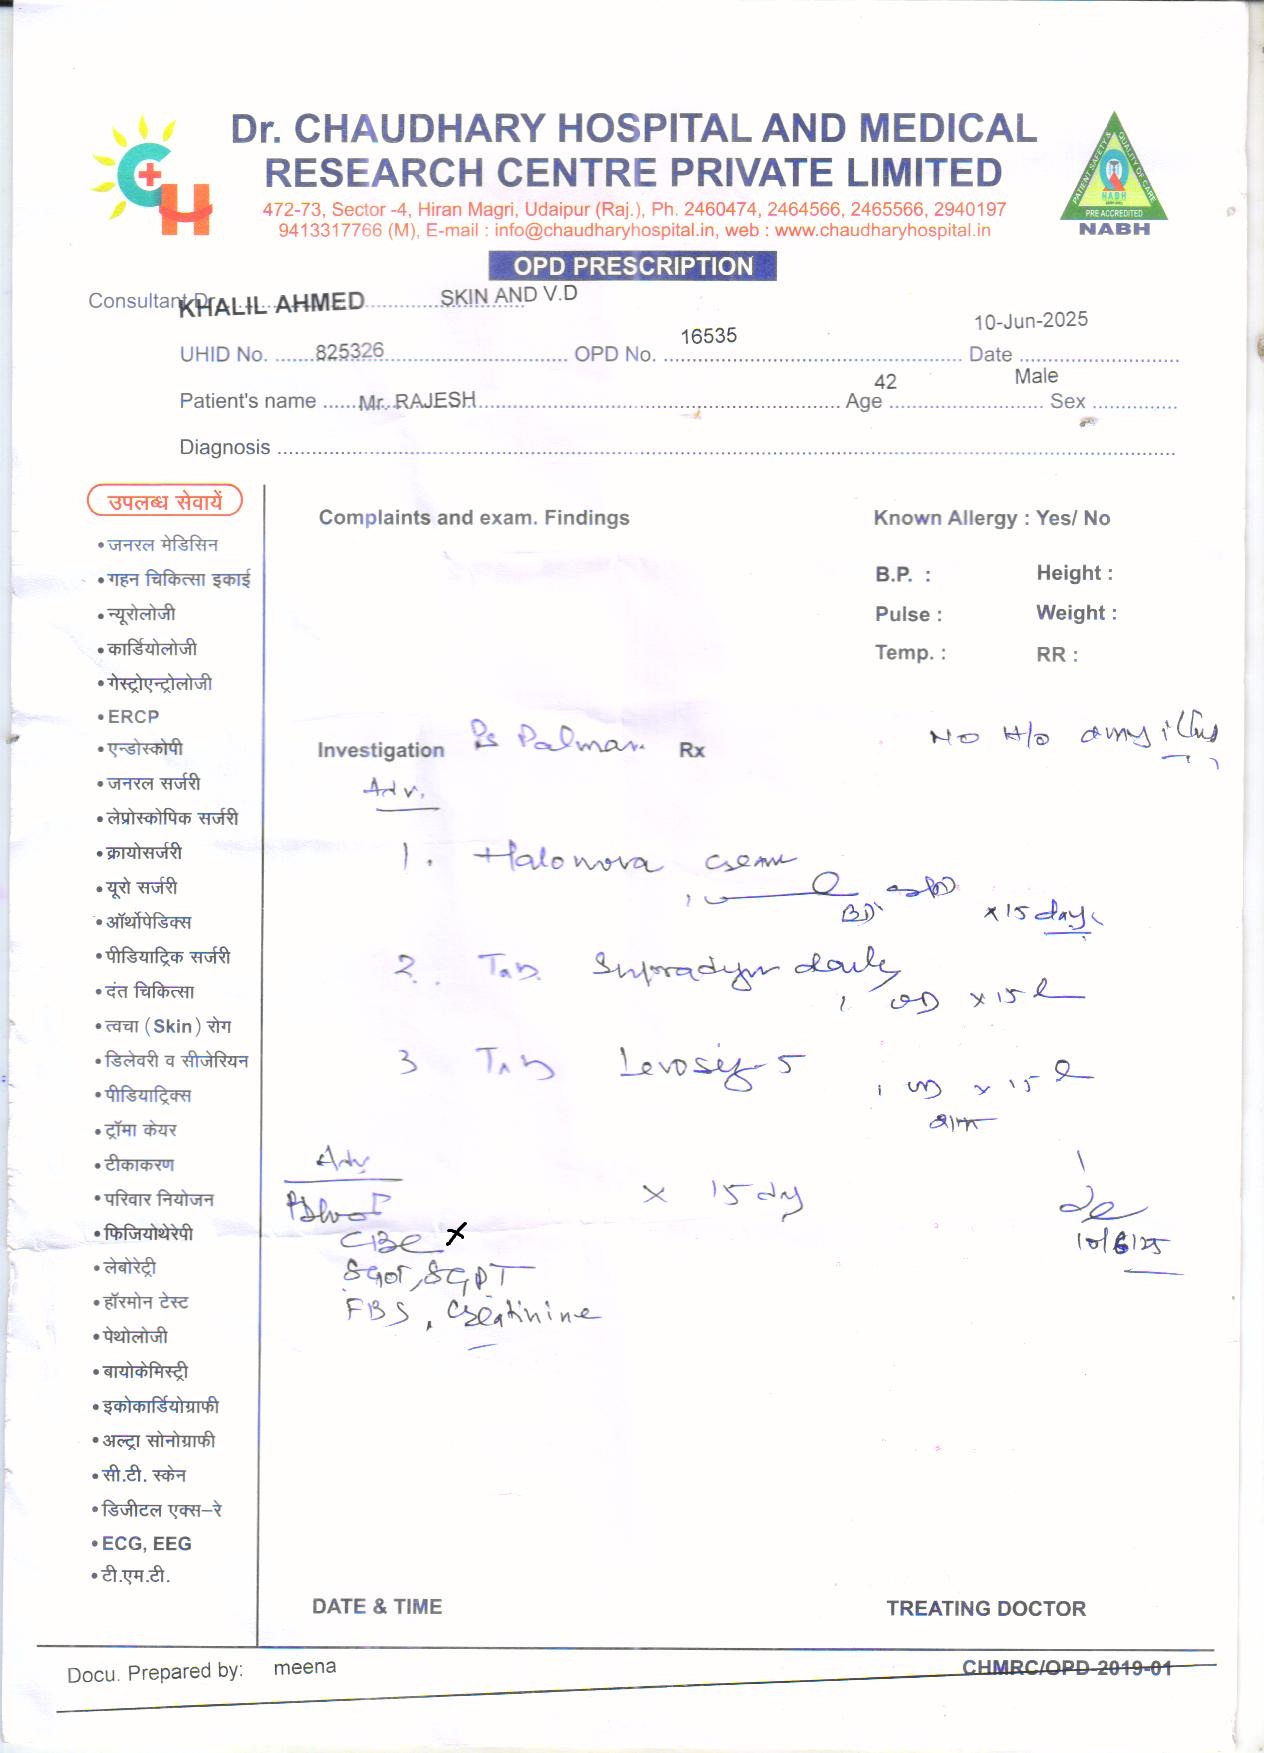 Dr. CHAUDHARY HOSPITAL AND MEDICAL
RESEARCH CENTRE PRIVATE LIMITED
472-73, Sector -4, Hiran Magri, Udaipur (Raj.), Ph. 2460474, 2464566, 2465566, 2940197
9413317766 (M), E-mail : info@chaudharyhospital.in, web : www.chaudharyhospital.in
PATIENT SAFETY & QUALITY OF CARE
NABH
PRE ACCREDITED
NABH
OPD PRESCRIPTION
Consultant Dr. KHALIL AHMED SKIN AND V.D
UHID No. 825326 OPD No. 16535 Date 10-Jun-2025
Patient's name Mr. RAJESH Age 42 Sex Male
Diagnosis
उपलब्ध सेवायें
• जनरल मेडिसिन
• गहन चिकित्सा इकाई
• न्यूरोलोजी
• कार्डियोलोजी
• गेस्ट्रोएन्ट्रोलोजी
• ERCP
• एन्डोस्कोपी
• जनरल सर्जरी
• लेप्रोस्कोपिक सर्जरी
• क्रायोसर्जरी
• यूरो सर्जरी
• ऑर्थोपेडिक्स
• पीडियाट्रिक सर्जरी
• दंत चिकित्सा
• त्वचा (Skin) रोग
• डिलेवरी व सीजेरियन
• पीडियाट्रिक्स
• ट्रॉमा केयर
• टीकाकरण
• परिवार नियोजन
• फिजियोथेरेपी
• लेबोरेट्री
• हॉरमोन टेस्ट
• पेथोलोजी
• बायोकेमिस्ट्री
• इकोकार्डियोग्राफी
• अल्ट्रा सोनोग्राफी
• सी.टी. स्केन
• डिजीटल एक्स-रे
• ECG, EEG
• टी.एम.टी.
Complaints and exam. Findings
Known Allergy : Yes/ No
B.P. : Height :
Pulse : Weight :
Temp. : RR :
Investigation Ps Palmar Rx
No H/o any
Adv.
1. Halonova cream
BD x 15 days
2. Tab. Supradyn daily
1 OD x 15
3 Tab Levosiz-5
1 OD x 15
शाम
Adv
x 15 day
Blood
CBC x
SGOT, SGPT
FBS, Creatinine
10/6/25
DATE & TIME
TREATING DOCTOR
Docu. Prepared by: meena
CHMRC/OPD-2019-01